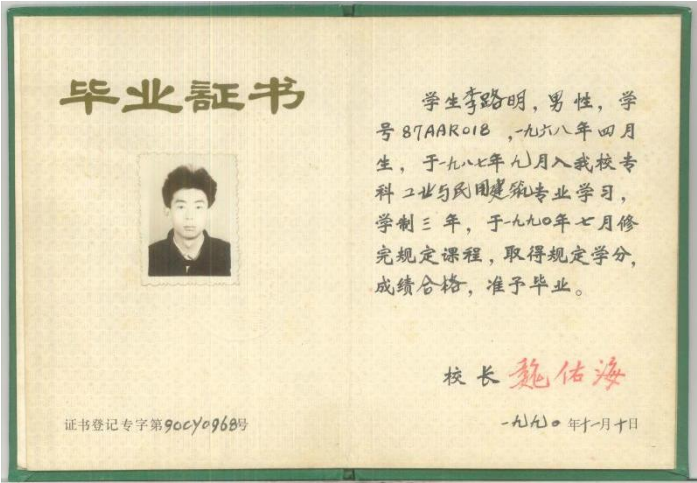 毕业証书
证书登记专字第90CY0968号
学生李路明，男性，学
号87AAR018，一九六八年四月
生，于一九八七年九月入我校专
科工业与民用建筑专业学习，
学制三年，于一九九〇年七月修
完规定课程，取得规定学分，
成绩合格，准予毕业。
校长 魏佑海
一九九〇年十一月十日